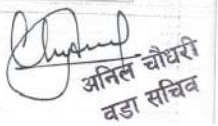 अनिल चौधरी
वडा सचिव